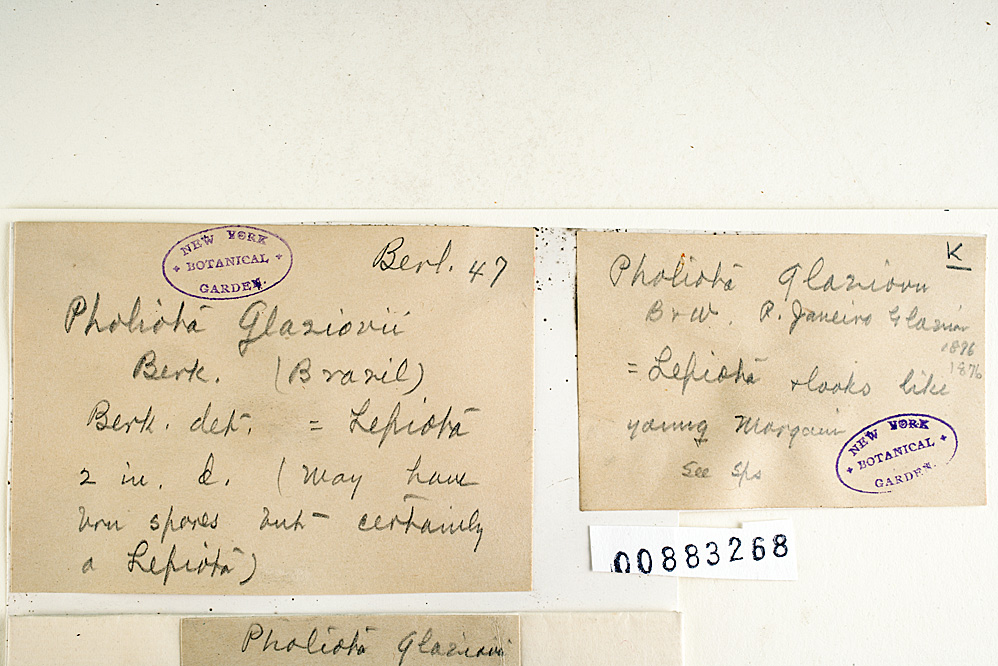 NEW YORK
BOTANICAL
GARDEN.
Berl. 47
Pholiota Glaziovii
Berk. (Brazil)
Berk. det. = Lepiota
2 in. d. (May have
brn spores but certainly
a Lepiota)
K
Pholiota Glaziovii
B & W. R. Janeiro Glaziov
1896
1876
= Lepiota & looks like
young Morgani
See Sps
NEW YORK
BOTANICAL
GARDEN.
00883268
Pholiota Glaziovii